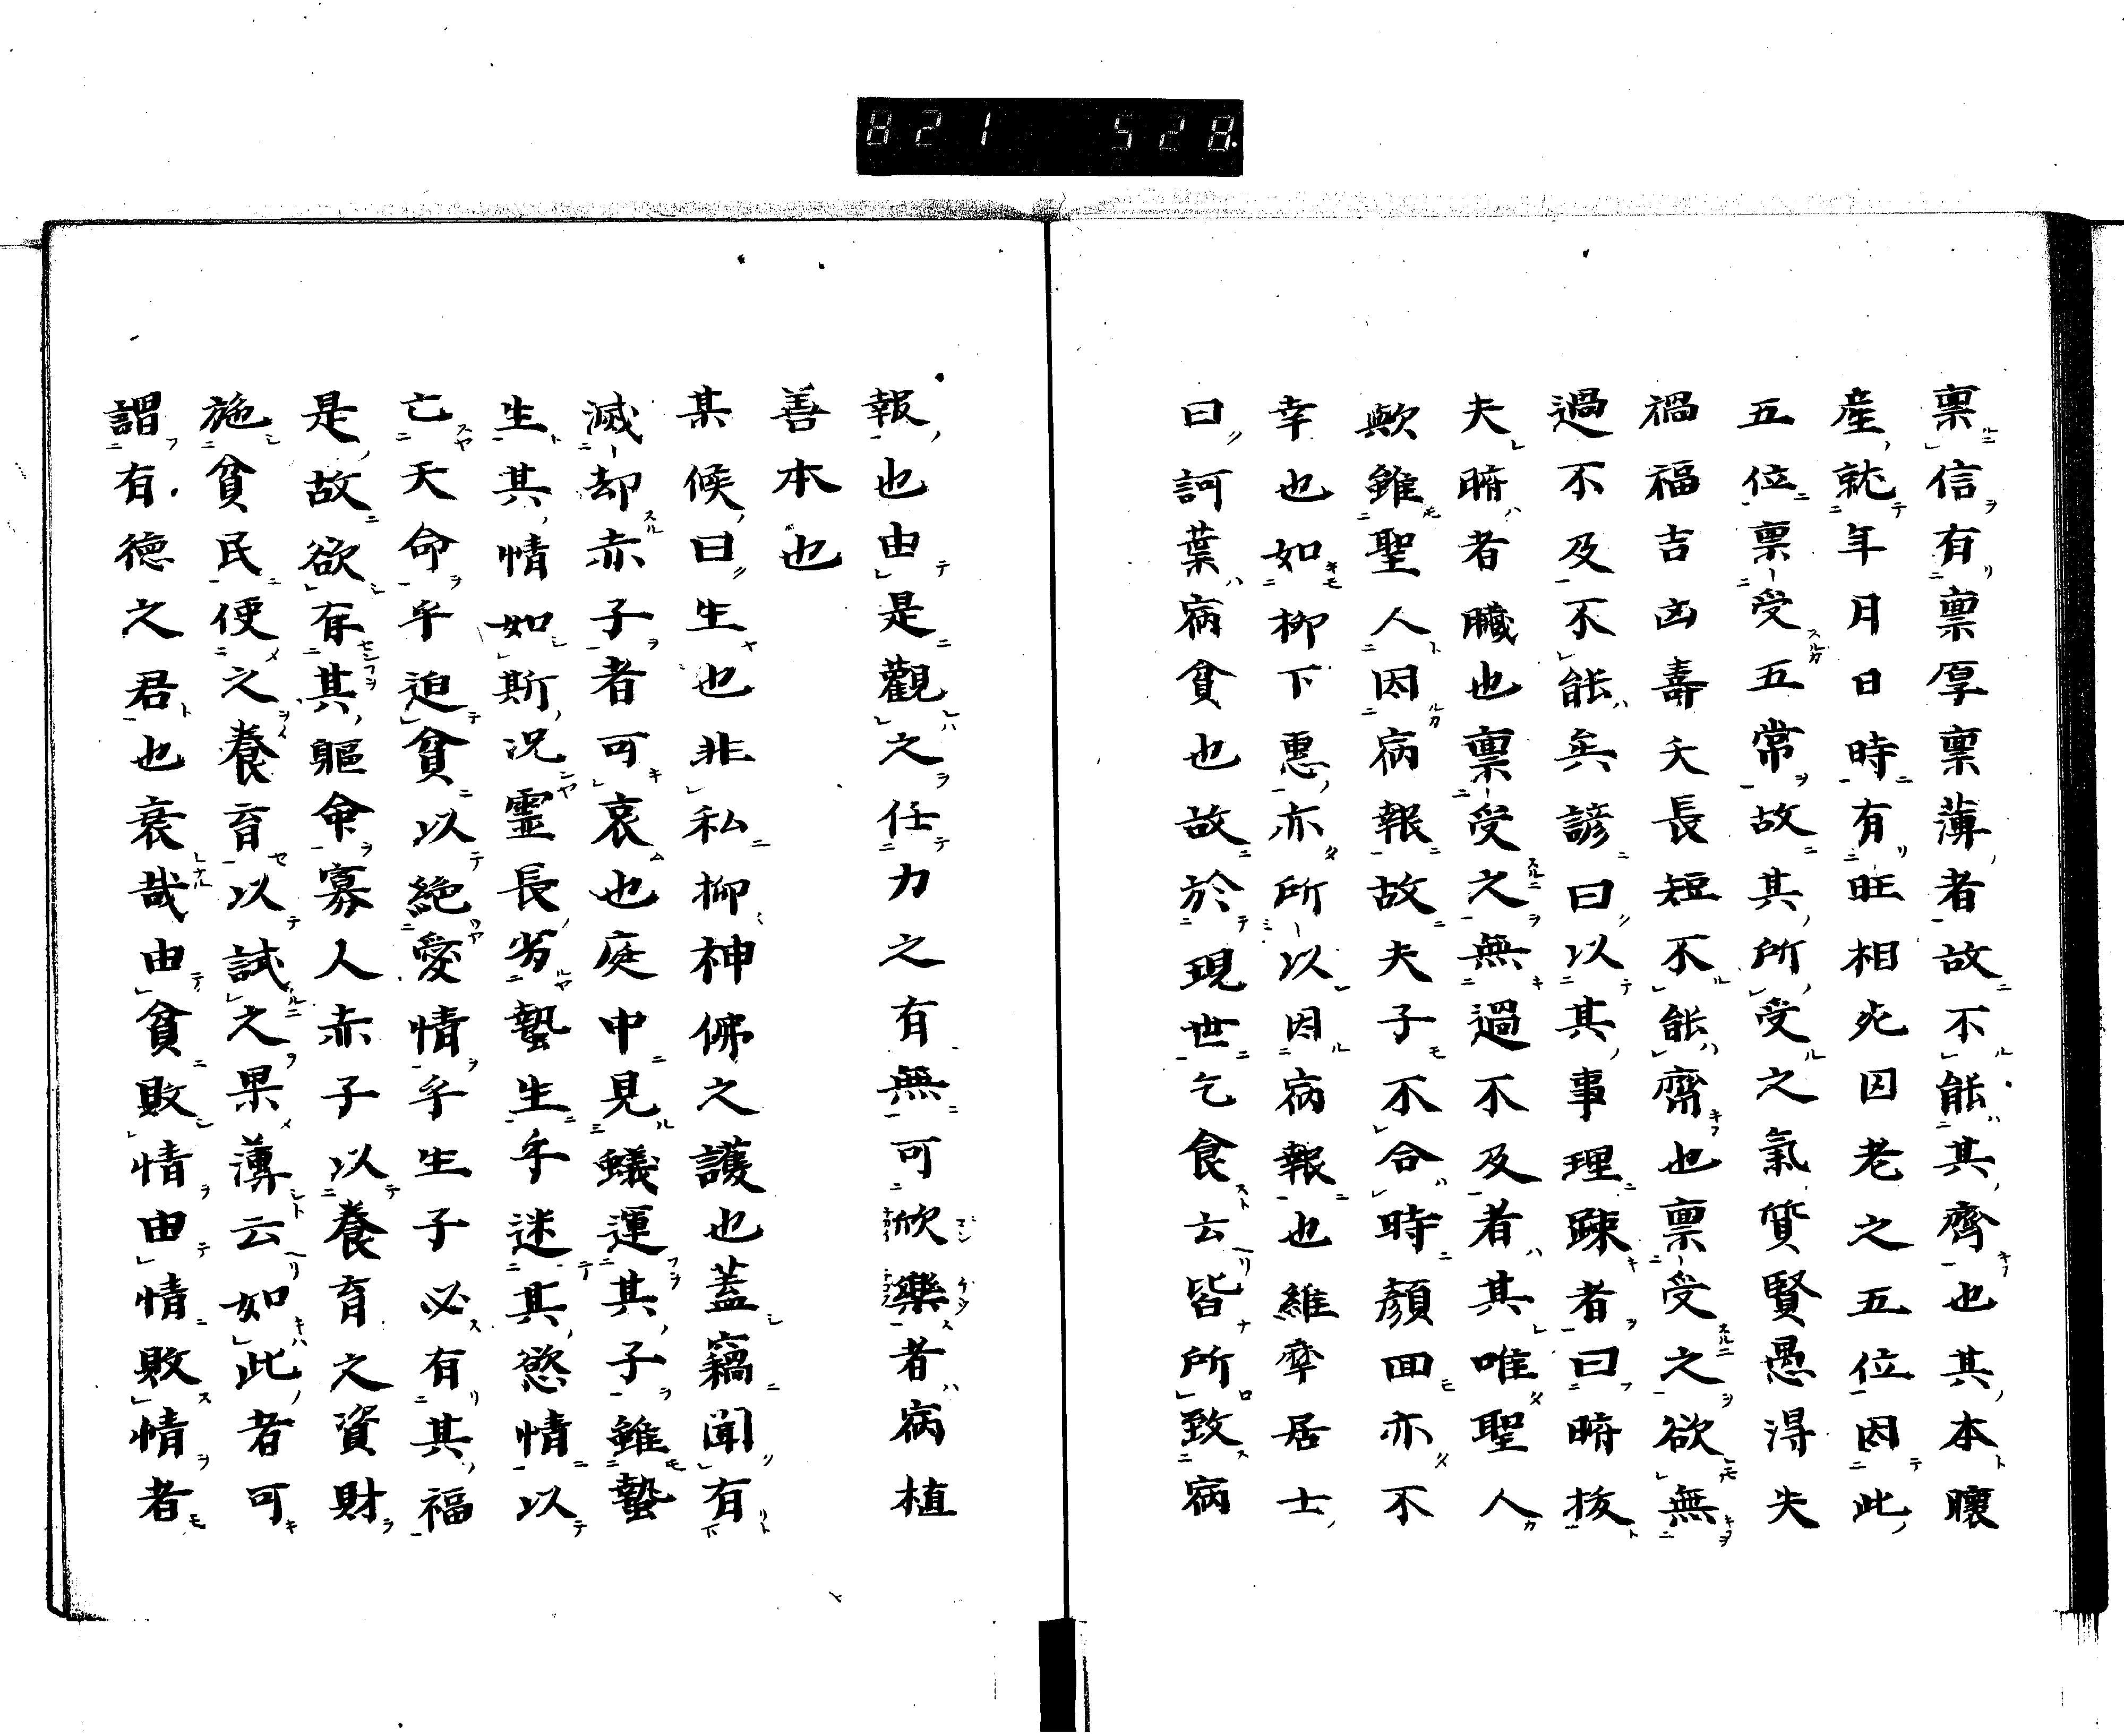 821 528.
禀信有禀厚禀薄者故不能其齊也其本曠
産就年月日時有旺相死囚老之五位因此
五位禀受五常故其所受之氣質賢愚得失
禍福吉凶壽夭長短不能齊也禀受之欲無
過不及不能矣諺曰以其事理疎者曰腑抜
夫腑者臓也禀受之無過不及者其唯聖人
歟雖聖人因病報故夫子不合時顏回亦不
幸也如柳下惠亦所以因病報也維摩居士
曰訶葉病貧也故於現世乞食云皆所致病
報也由是觀之任力之有無可欣樂者病植
善本也
某候曰生也非私柳神佛之護也蓋竊聞有
滅却赤子者可哀也庭中見蟻運其子雖蟄
生其情如斯況霊長劣蟄生乎迷其慾情以
亡天命乎迫貧以絶愛情乎生子必有其福
是故欲存其軀命寡人赤子以養育之資財
施貧民便之養育以試之果薄云如此者可
謂有徳之君也衰哉由貧敗情由情敗情者